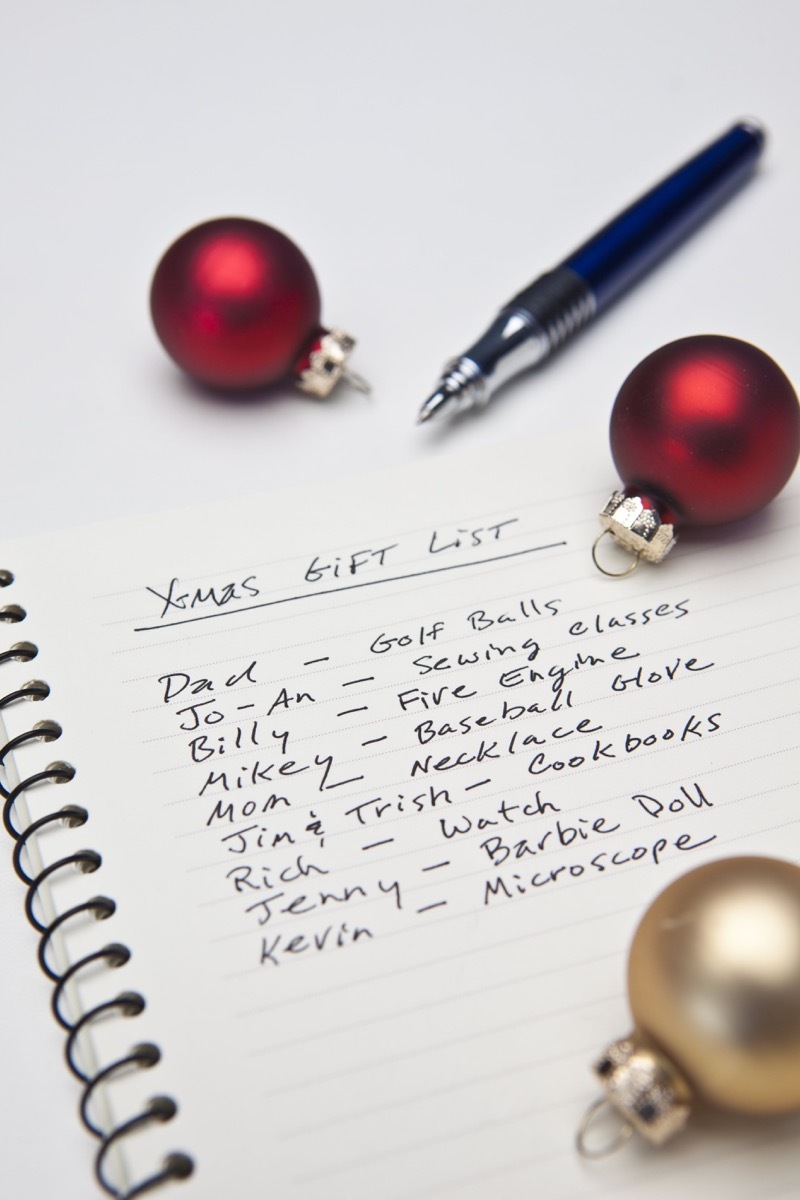 Xmas Gift List
Dad - Golf Balls
Jo-An - Sewing classes
Billy - Fire Engine
Mikey - Baseball Glove
Mom - Necklace
Jim & Trish - Cookbooks
Rich - Watch
Jenny - Barbie Doll
Kevin - Microscope